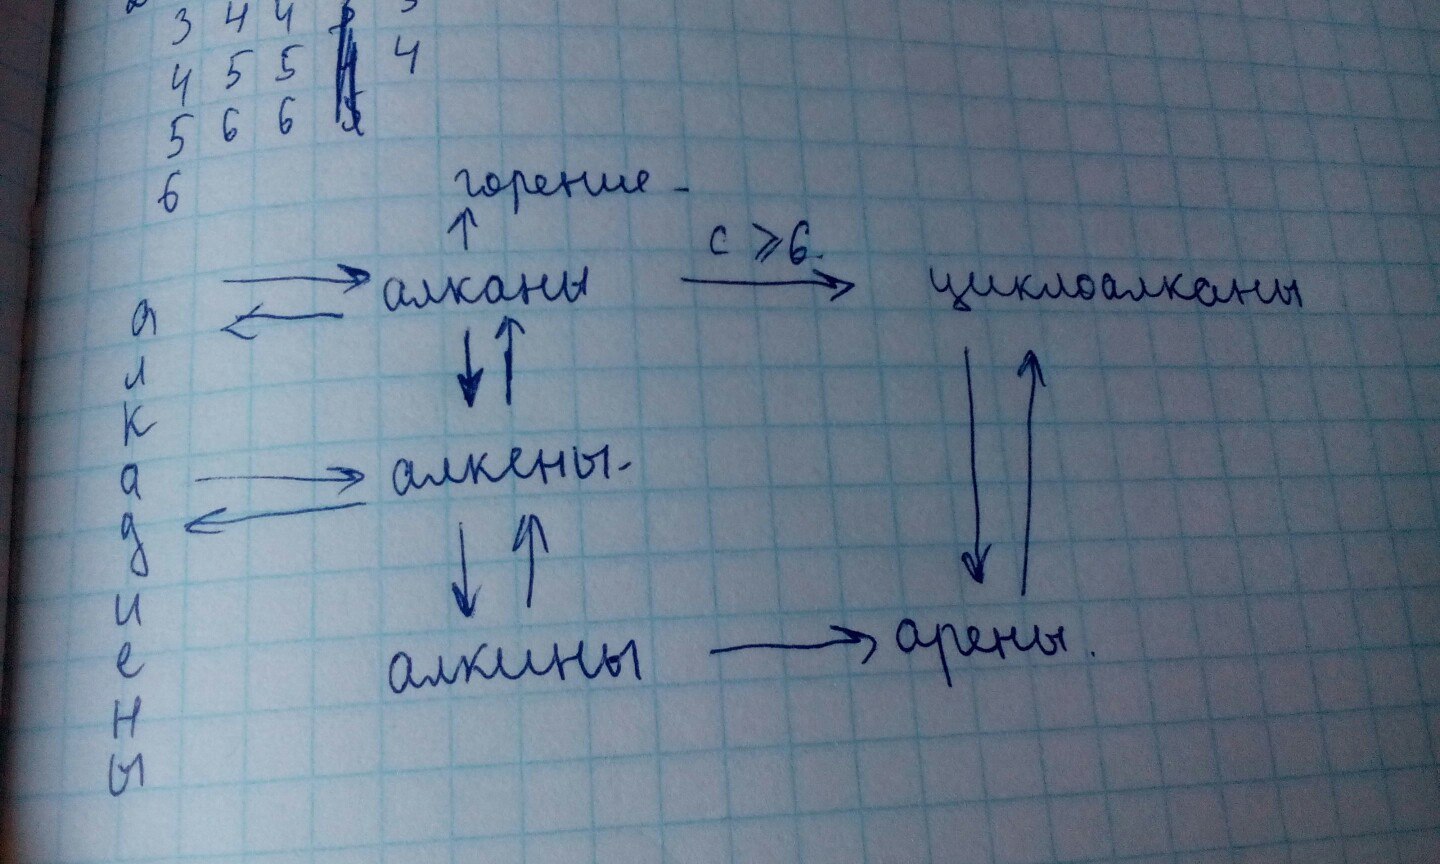 3 4 4 3
4 5 5 4
5 6 6
6
горение -
с ⩾ 6.
алканы циклоалканы
алкены-
алкины арены.
а
л
к
а
д
и
е
н
ы